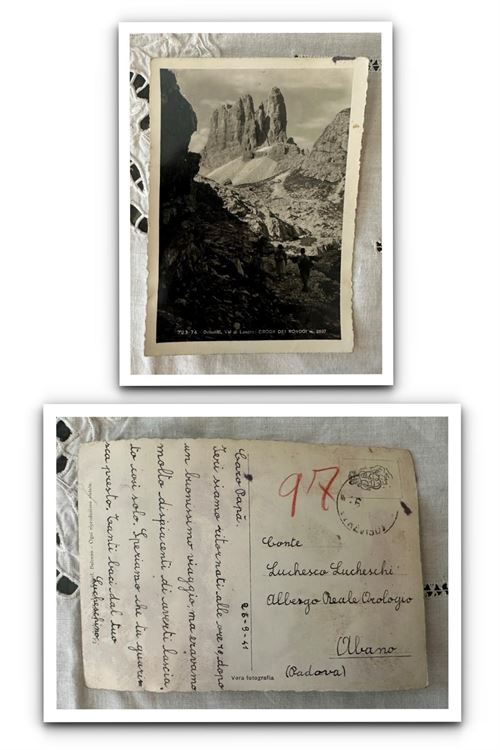 723-74 Dolomiti, Val di Lavare: CRODA DEI RONDOI m. 2807
Caro Papà
Ieri siamo ritornati alle ore 19, dopo
un buonissimo viaggio, ma eravamo
molto dispiacenti di averti lascia-
to così solo. Speriamo che tu guari-
sca presto. Tanti baci dal tuo
Lucheschino.
26-9-41
97
Conte
Luchesco Lucheschi
Albergo Reale Orologio
Abano
(Padova)
Vera fotografia